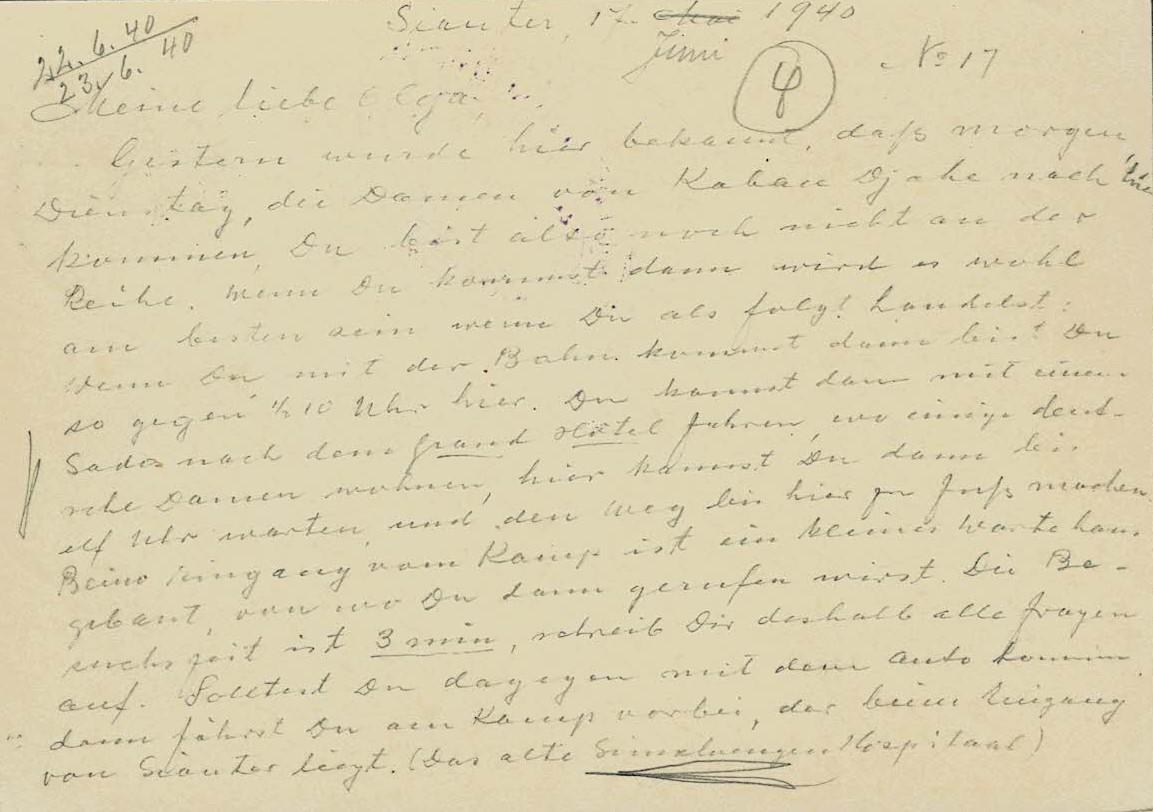 22.6.40
23.6.40
Siantar, 17. Mai 1940
Juni
4
No 17
Meine liebe Olga,
Gestern wurde hier bekannt, daß morgen
Dienstag, die Damen von Kaban Djahe nach hie
kommen, Du bist also noch nicht an der
Reihe. Wenn Du kommst dann wird es wohl
am besten sein wenn Du als folgt handelst:
Wenn Du mit der Bahn kommst dann bist Du
so gegen 1/2 10 Uhr hier. Du kannst dann mit einem
Sado nach dem Grand Hotel fahren, wo einige deut-
sche Damen wohnen, hier kannst Du dann bis
elf Uhr warten, und den Weg bis hier zu Fuß machen.
Beim Eingang vom Kamp ist ein kleines Wartehaus
gebaut, von wo Du dann gerufen wirst. Die Be-
suchszeit ist 3 min, schreib Dir deshalb alle Fragen
auf. Solltest Du dagegen mit dem Auto kommen
dann fährst Du am Kamp vorbei, der beim Eingang
von Siantar liegt. (Das alte Simeloengen Hospitaal)